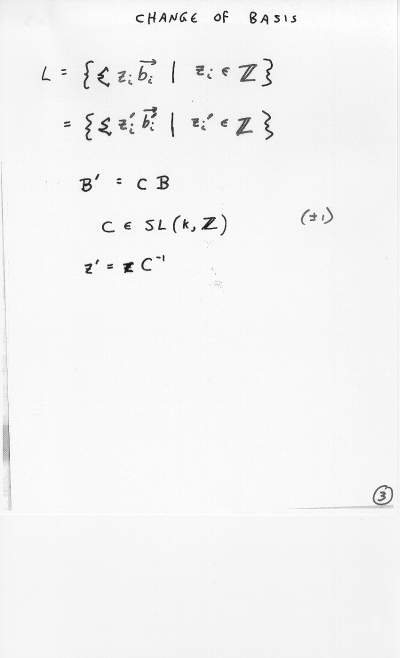 CHANGE OF BASIS
L = { Σ zᵢ b⃗ᵢ | zᵢ ∈ ℤ }
= { Σ zᵢ′ b⃗ᵢ′ | zᵢ′ ∈ ℤ }
B′ = C B
C ∈ SL(k, ℤ) (±1)
z′ = z C⁻¹
3